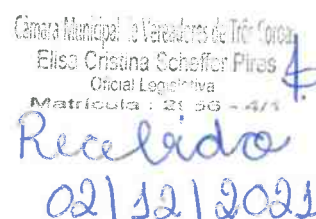 Câmara Municipal de Vereadores de Três Coroas
Elisa Cristina Scheffer Piras
Oficial Legislativa
Matrícula :
Recebido
02/12/2021